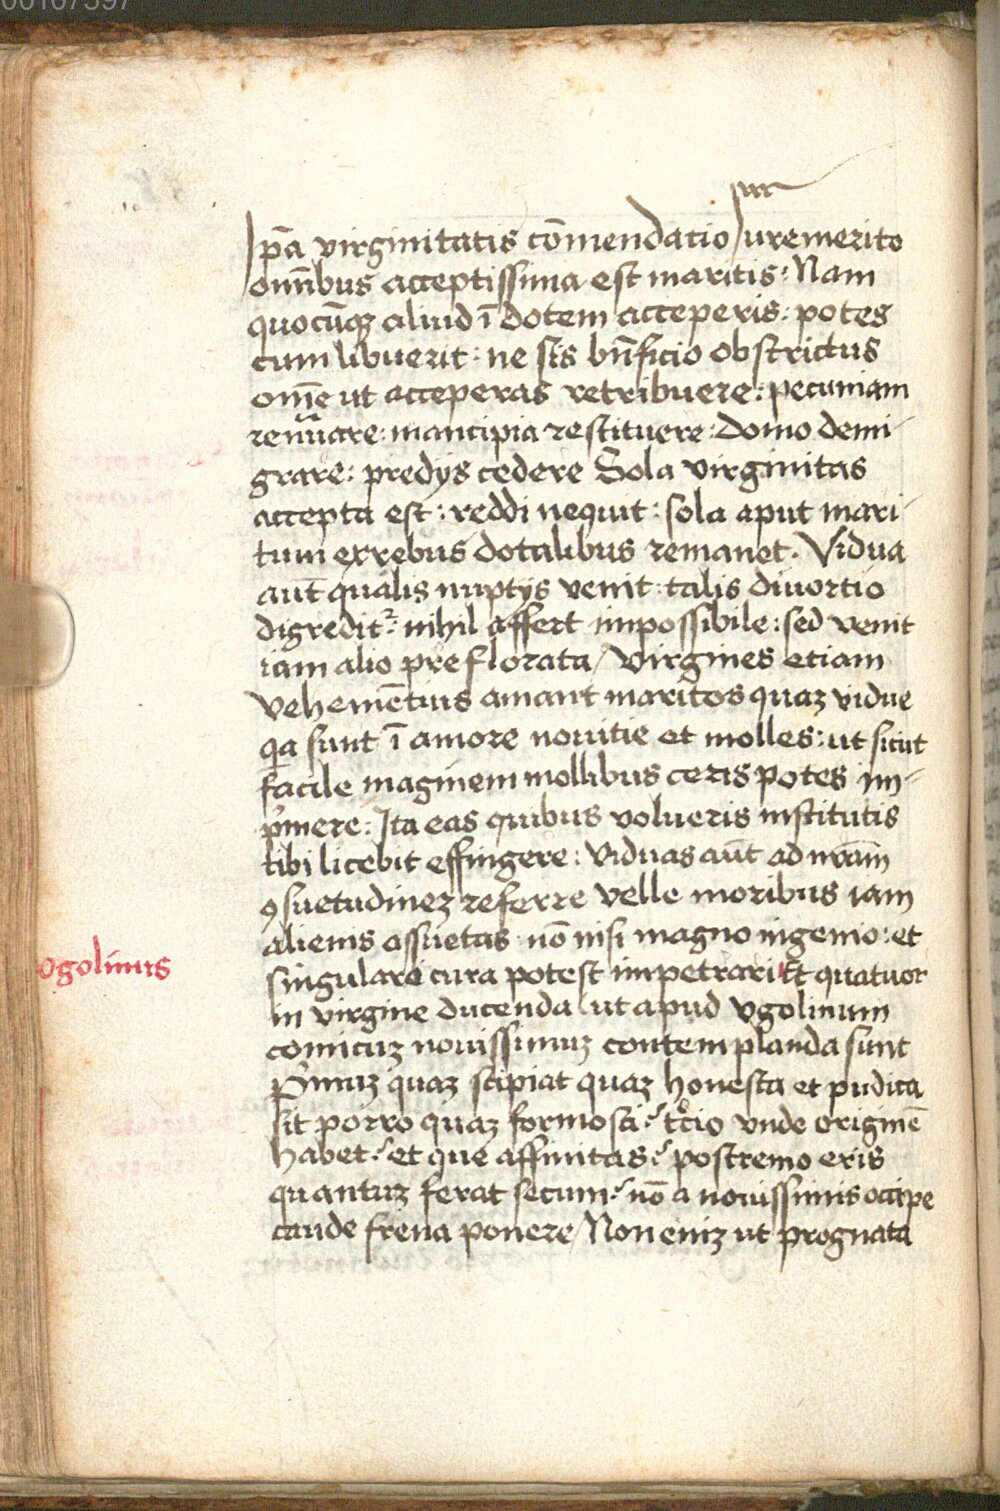 00107597
jur
Ipa virginitatis cōmendatio Iuremerito
om̄ibus acceptissima est maritis: Nam
quocūqȝ aliud ī dotem acceperis: potes
cum libuerit: ne sis bn̄ficio obstrictus
om̄e ut acceperas retribuere: pecuniam
renūare: mancipia restituere: domo demi-
grare: predijs cedere Sola virginitas
accepta est: reddi nequit: sola aput mari-
tum ex rebus dotalibus remanet. Vidua
aut̄ qualis nuptijs venit: talis divortio
digredit᷑: nihil affert impossibile: sed venit
iam alio preflorata / Virgines etiam
vehemētius amant maritos quaȝ vidue
qa sunt ī amore novitie et molles: ut sicut
facile maginem mollibus ceris potes im-
p̄mere: Ita eas quibus volueris institutis
tibi licebit effingere: Viduas aūt ad nr̄am
ꝯsuetudineȝ referre velle moribus iam
alienis assuetas nō nisi magno ingenio: et
Ugolinus
singulari cura potest impetrari Et quatuor
in virgine ducenda ut apud Vgolinum
comicuȝ novissimuȝ contemplanda sunt
P̄muȝ quaȝ scipiat quaȝ honesta et pudica
sit porro quaȝ formosa? t̄cio unde originē
habet? et que affinitas? postremo eris
quantuȝ ferat secum? nō a novissimis occipe
caude frena ponere / Non eniȝ ut prognata